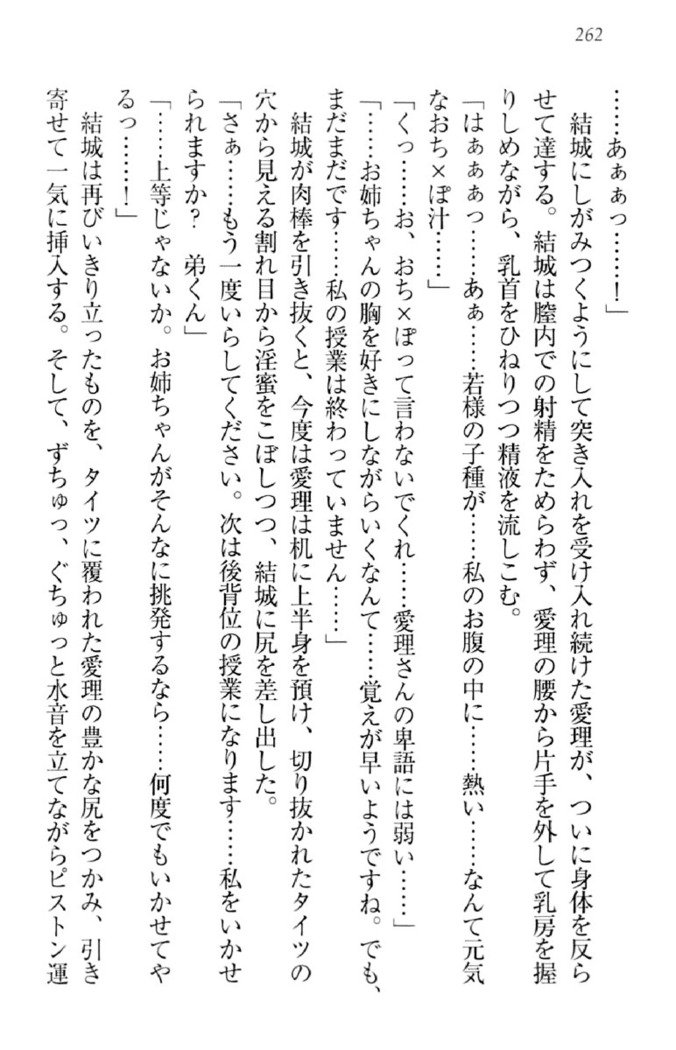 262
……あぁぁっ……！」
　結城にしがみつくようにして突き入れを受け入れ続けた愛理が、ついに身体を反ら
せて達する。結城は膣内での射精をためらわず、愛理の腰から片手を外して乳房を握
りしめながら、乳首をひねりつつ精液を流しこむ。
「はぁぁぁっ……あぁ……若様の子種が……私のお腹の中に……熱い……なんて元気
なおち×ぽ汁……」
「くっ……お、おち×ぽって言わないでくれ……愛理さんの卑語には弱い……」
「……お姉ちゃんの胸を好きにしながらいくなんて……覚えが早いようですね。でも、
まだまだです……私の授業は終わっていません……」
　結城が肉棒を引き抜くと、今度は愛理は机に上半身を預け、切り抜かれたタイツの
穴から見える割れ目から淫蜜をこぼしつつ、結城に尻を差し出した。
「さぁ……もう一度いらしてください。次は後背位の授業になります……私をいかせ
られますか？　弟くん」
「……上等じゃないか。お姉ちゃんがそんなに挑発するなら……何度でもいかせてや
るっ……！」
　結城は再びいきり立ったものを、タイツに覆われた愛理の豊かな尻をつかみ、引き
寄せて一気に挿入する。そして、ずちゅっ、ぐちゅっと水音を立てながらピストン運